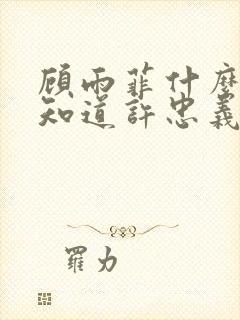 顾雨菲什麼
知道許忠義
羅力